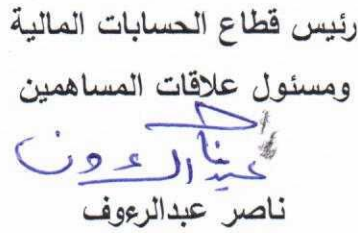 رئيس قطاع الحسابات المالية
ومسئول علاقات المساهمين
ناصر عبدالرءوف